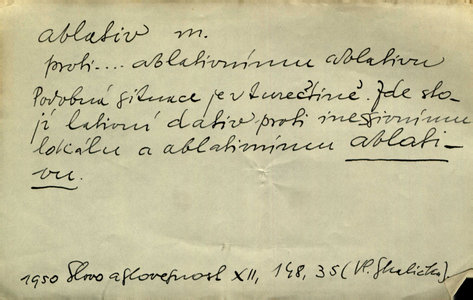 ablativ m.
proti.... ablativnímu ablativu
Podobná situace je v turečtině. Zde sto-
jí lativní dativ proti inesivnímu
lokálu a ablativnímu ablati-
vu.
1950 Slovo a slovesnost XII, 148, 35 (Vl. Skalička).